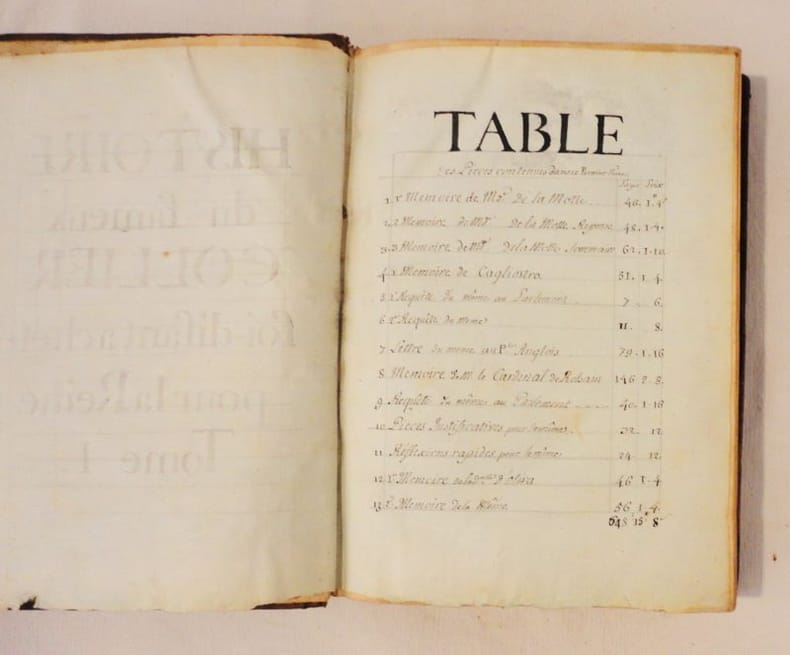 HISTOIRE
du fameux
COLLIER
soi disant acheté
pour la Reine
Tome 1
TABLE
Des Pieces contenues dans ce Premier
Pages Prix
1 1er Memoire de Me. de la Motte 46. 1. 4
2 2 Memoire de Me. de la Motte Reponse 48. 1. 4.
3 3 Memoire de Me. de la Motte Sommaire 62. 1. 10
4 1 Memoire de Cagliostro 51. 1. 4
5 1e Requête du même au Parlement 7 6.
6 2e Requête du même 11. 8.
7 Lettre du meme au Ple Anglois 79. 1. 16
8 Memoire de Mr. le Cardinal de Rohan 146 2. 8.
9 Requête du même au Parlement 40. 1. 18
10 Pieces Justificatives pour le même. 32. 12
11 Réflexions rapides pour le même 24 12.
12 1er Memoire de la Dlle d'oliva 46 1. 4
13 2. Memoire de la Même. 56. 1. 4.
648 15 8